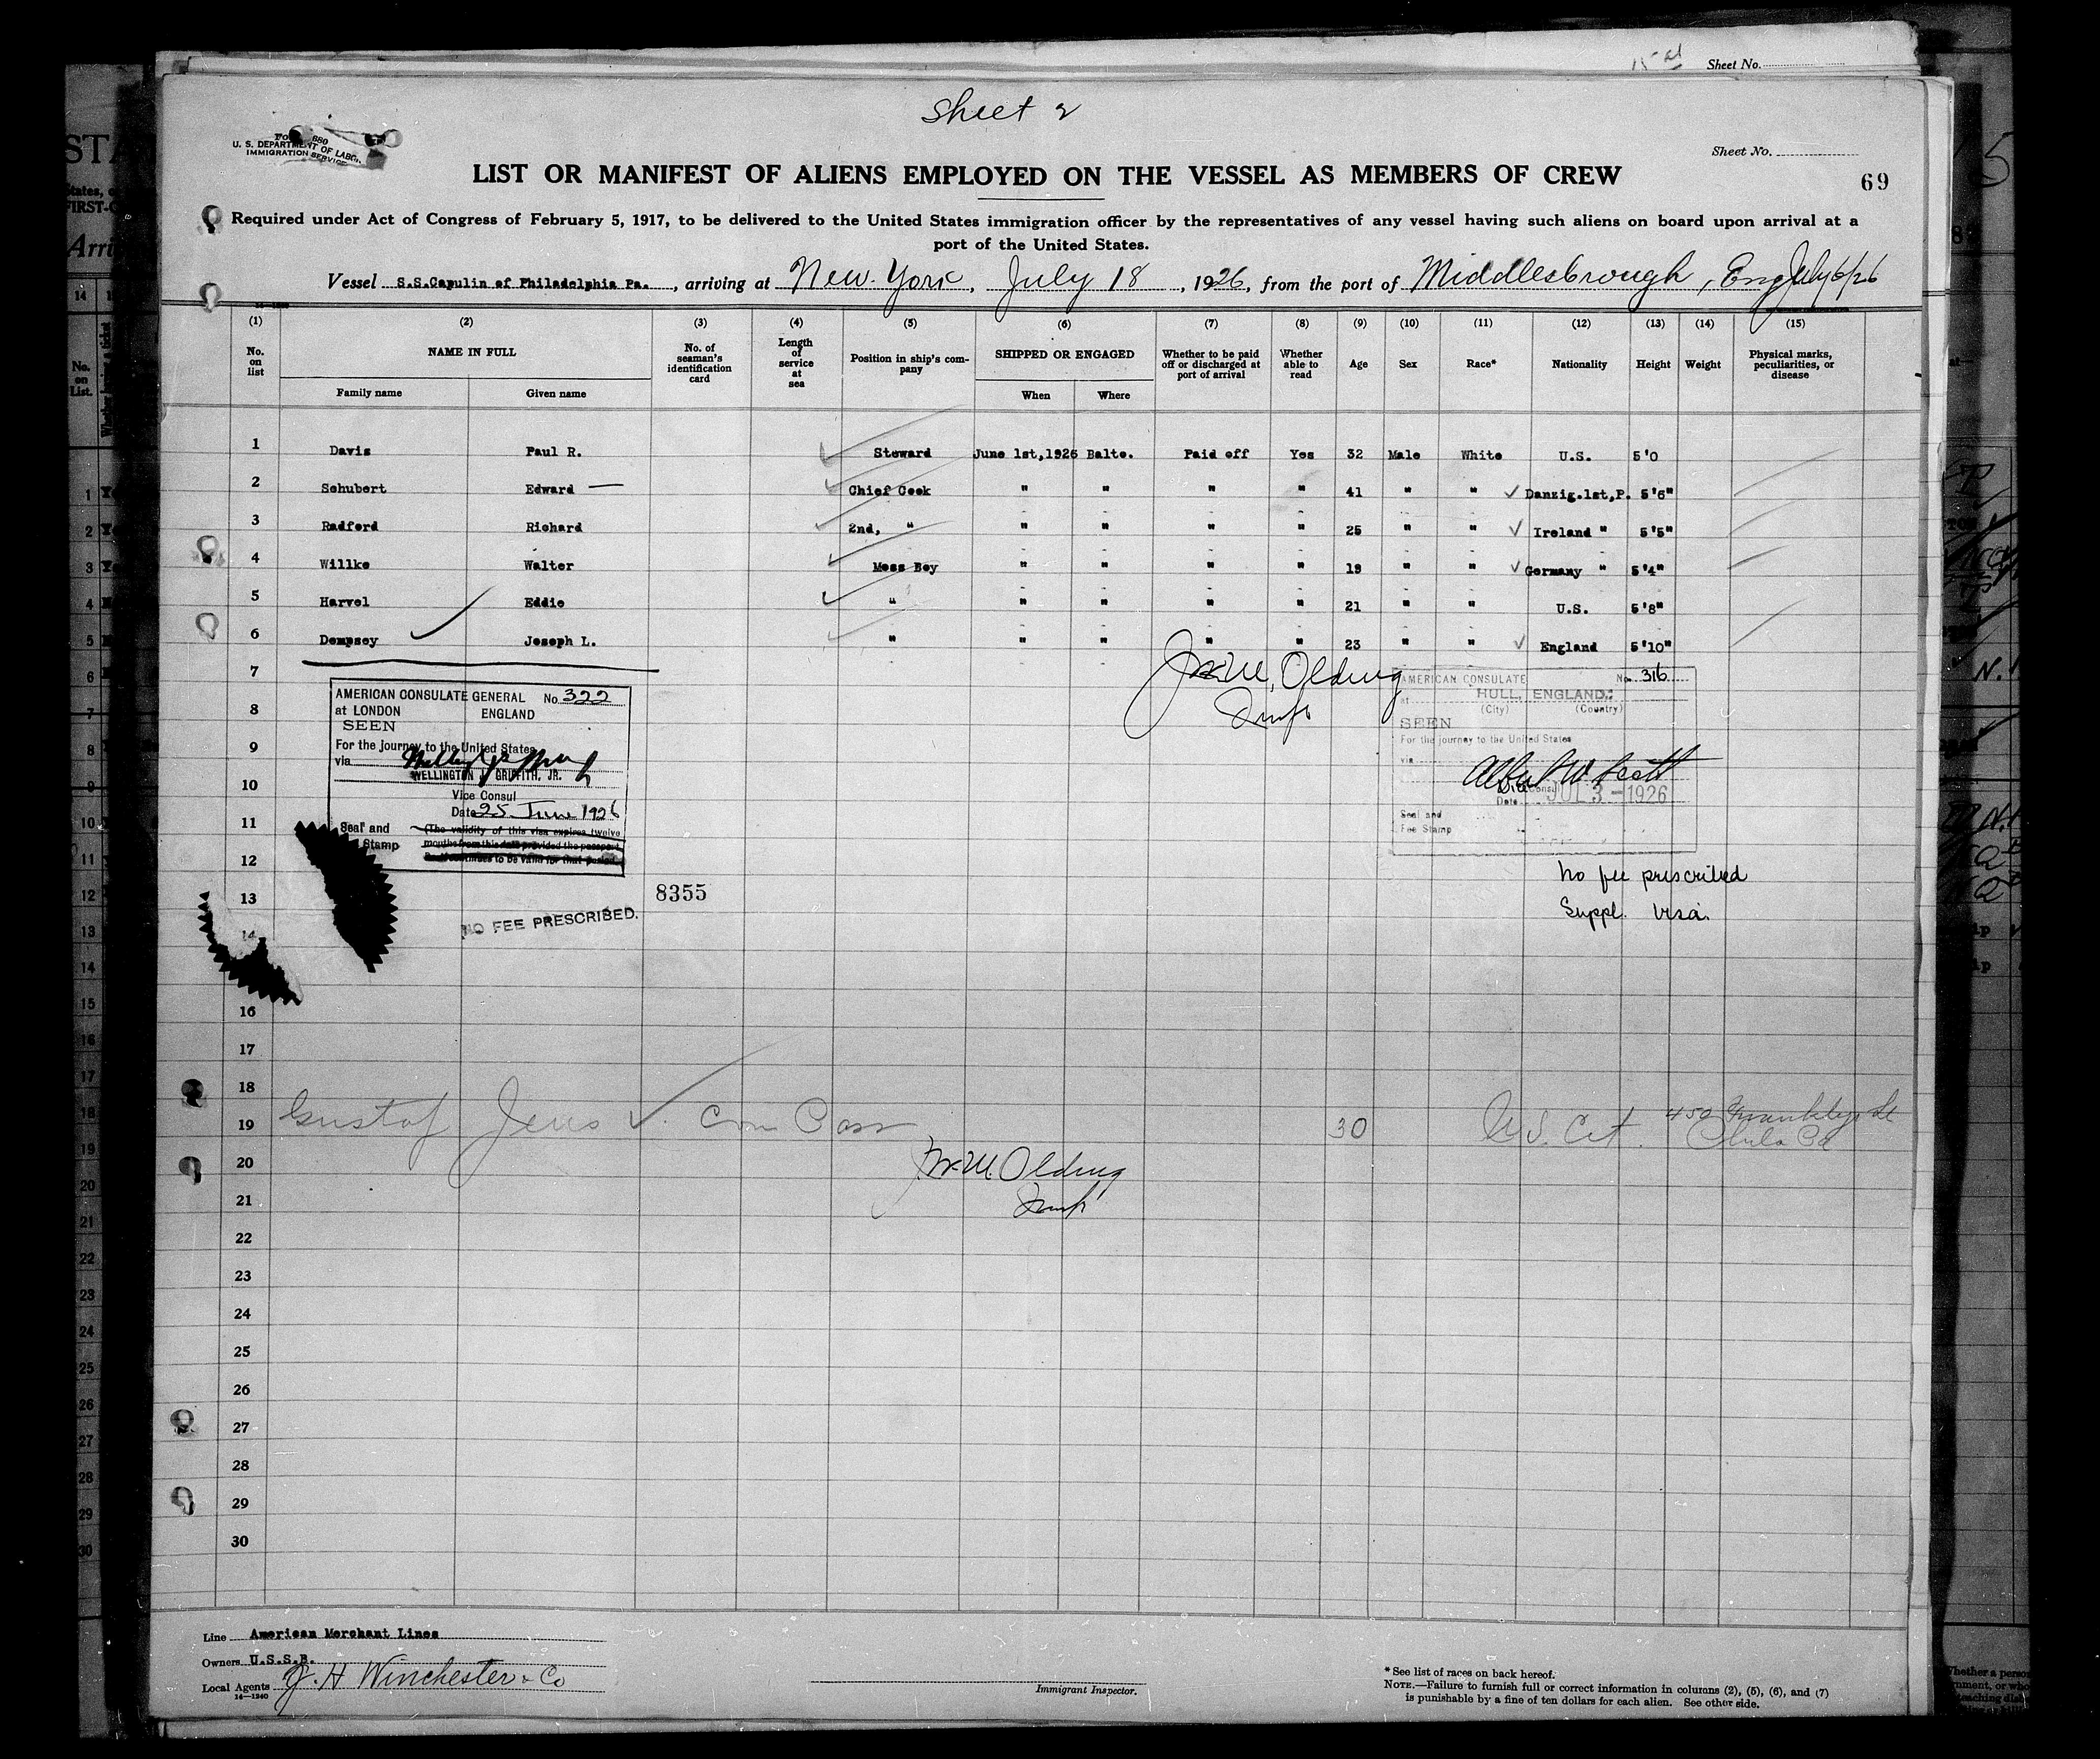 Sheet No.
Sheet 2
U. S. DEPARTMENT OF LABOR
IMMIGRATION SERVICE
Sheet No.
LIST OR MANIFEST OF ALIENS EMPLOYED ON THE VESSEL AS MEMBERS OF CREW
69
Required under Act of Congress of February 5, 1917, to be delivered to the United States immigration officer by the representatives of any vessel having such aliens on board upon arrival at a
port of the United States.
Vessel S.S.Capulin of Philadelphia Pa., arriving at New York, July 18, 1926, from the port of Middlesbrough, Eng July 6/26
(1) (2) (3) (4) (5) (6) (7) (8) (9) (10) (11) (12) (13) (14) (15)
No. on list NAME IN FULL No. of seaman's identification card Length of service at sea Position in ship's company SHIPPED OR ENGAGED Whether to be paid off or discharged at port of arrival Whether able to read Age Sex Race* Nationality Height Weight Physical marks, peculiarities, or disease
Family name Given name When Where
1 Davis Paul R. Steward June 1st,1926 Balto. Paid off Yes 32 Male White U.S. 5'0
2 Schubert Edward — Chief Cook " " " " 41 " " Danzig.1st,P. 5'6"
3 Radford Richard 2nd, " " " " " 25 " " Ireland " 5'5"
4 Willke Walter Mess Boy " " " " 19 " " Germany " 5'4"
5 Harvel Eddie " " " " " 21 " " U.S. 5'8"
6 Dempsey Joseph L. " " " " " 23 " " England 5'10"
7
8
9
10
11
12
13
14
16
17
18
19
20
21
22
23
24
25
26
27
28
29
30
AMERICAN CONSULATE GENERAL No 322
at LONDON ENGLAND
SEEN
For the journey to the United States
via
WELLINGTON J. GRIFFITH, JR.
Vice Consul
Date 25 June 1926
Seal and
Stamp
(The validity of this visa expires twelve
months from this date provided the passport
continues to be valid for that period.
8355
NO FEE PRESCRIBED.
M. Olding
AMERICAN CONSULATE No. 316
at HULL, ENGLAND.
(City) (Country)
SEEN
For the journey to the United States
via
Albert W Scott
Consul
Date JUL 3 - 1926
Seal and
Fee Stamp
No fee prescribed
Suppl. visa.
Gustof Jens 30 U.S. Cit. 450
Phila Pa
M. Olding
Line American Merchant Lines
Owners U.S.S.B.
Local Agents J. H Winchester & Co
14—1240
Immigrant Inspector.
* See list of races on back hereof.
NOTE.—Failure to furnish full or correct information in columns (2), (5), (6), and (7)
is punishable by a fine of ten dollars for each alien. See other side.